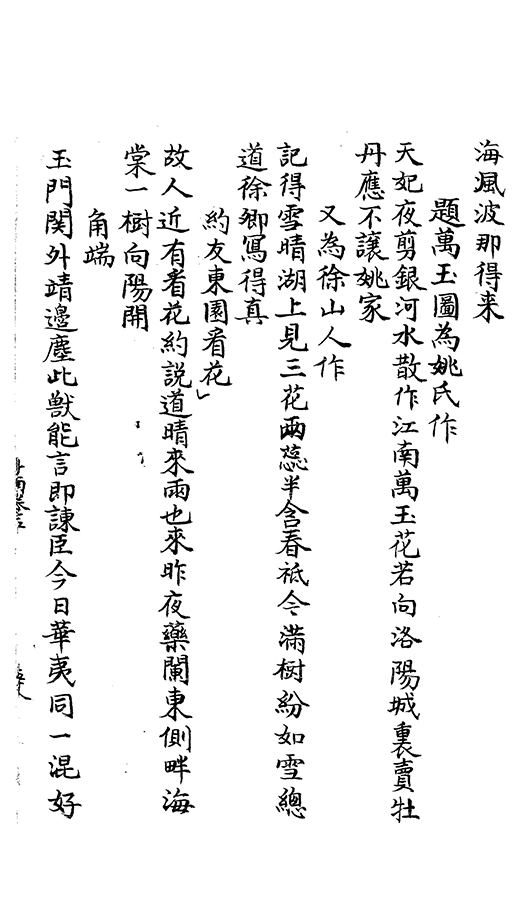 海風波那得来
題萬玉圖為姚氏作
天妃夜剪銀河水散作江南萬玉花若向洛陽城裏賣牡
丹應不讓姚家
又為徐山人作
記得雪晴湖上見三花兩蕊半含春祗今滿樹紛如雪總
道徐卿寫得真
約友東園看花
故人近有看花約說道晴來雨也來昨夜藥闌東側畔海
棠一樹向陽開
角端
玉門関外靖邊塵此獸能言即諫臣今日華夷同一混好